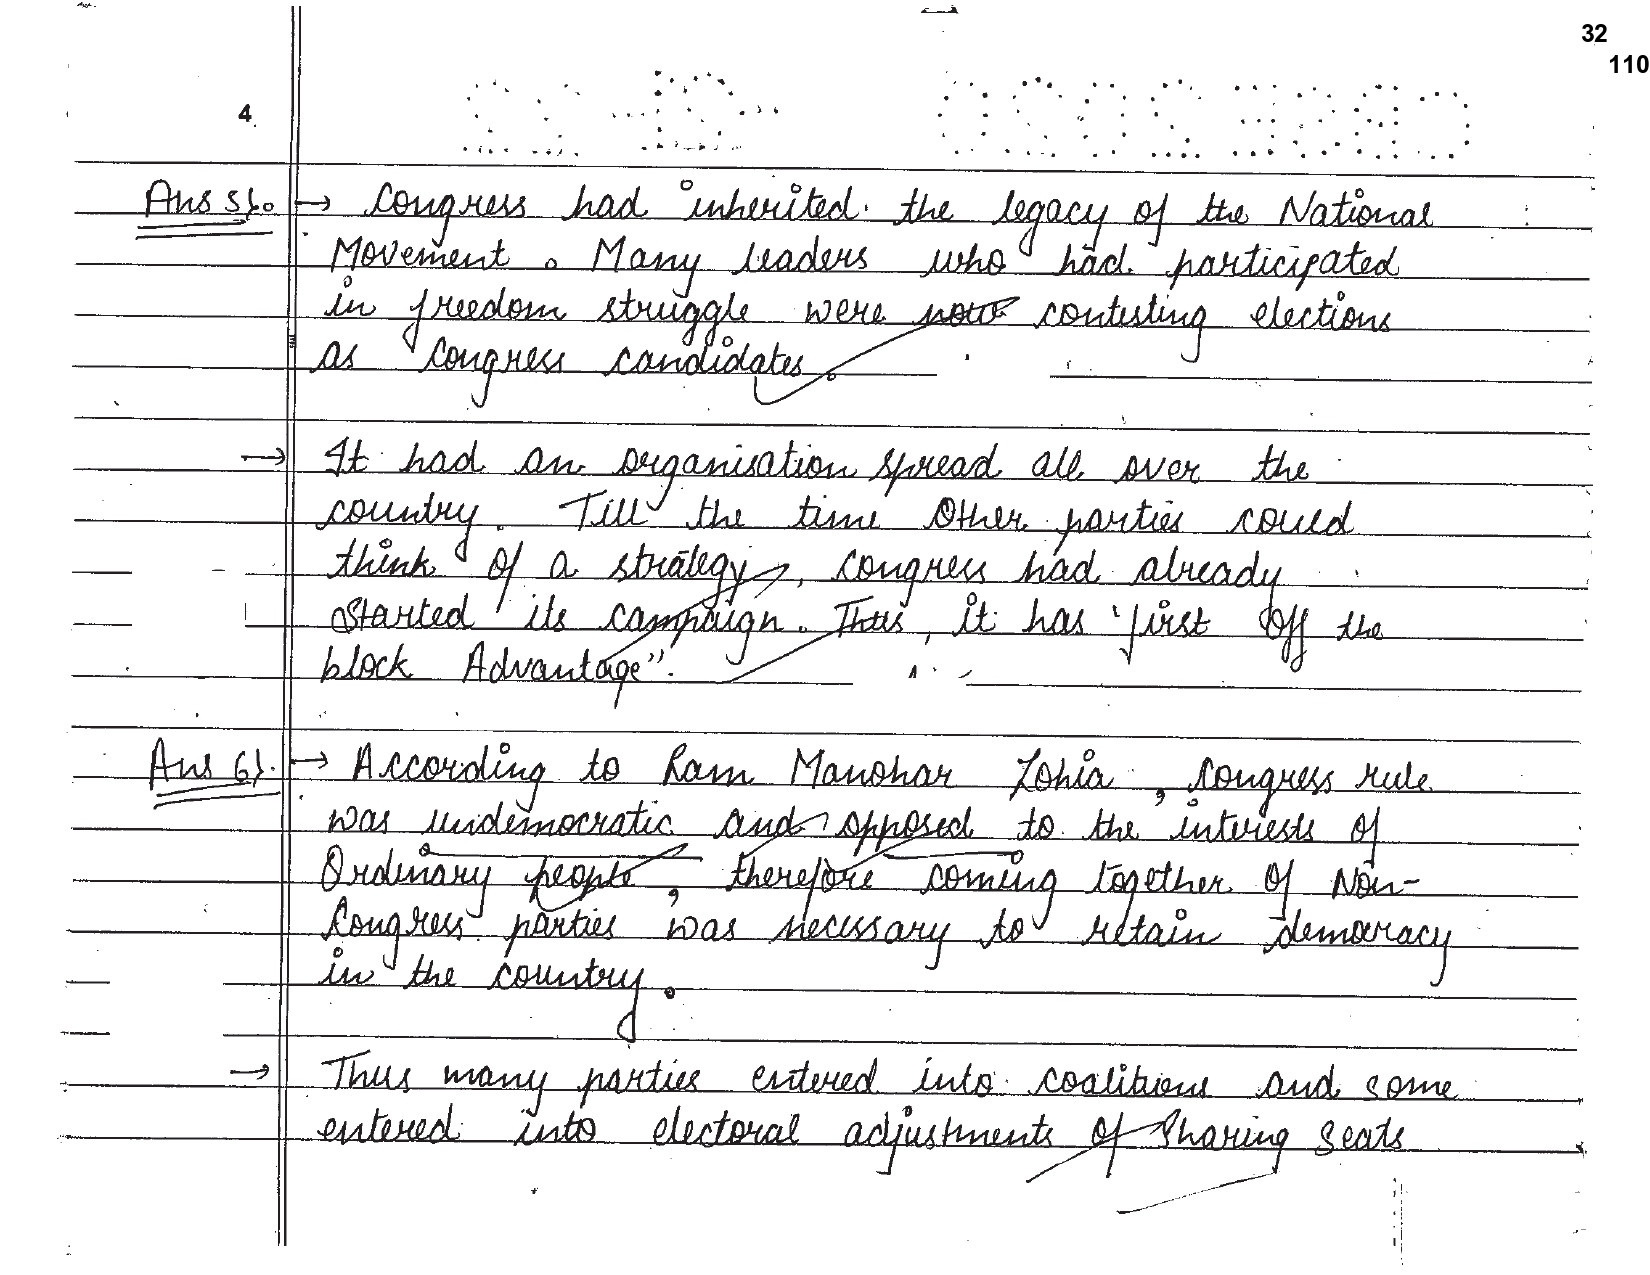 32
110
4
Ans 5). → Congress had inherited the legacy of the National
Movement. Many leaders who had participated
in freedom struggle were now contesting elections
as Congress candidates.
→ It had an organisation spread all over the
country. Till the time other parties could
think of a strategy, Congress had already
started its campaign. Thus, it has 'first off the
block Advantage".
Ans 6). → According to Ram Manohar Lohia, Congress rule
was undemocratic and opposed to the interests of
Ordinary people, therefore coming together of Non-
Congress parties was necessary to retain democracy
in the country.
→ Thus many parties entered into coalitions and some
entered into electoral adjustments of sharing seats